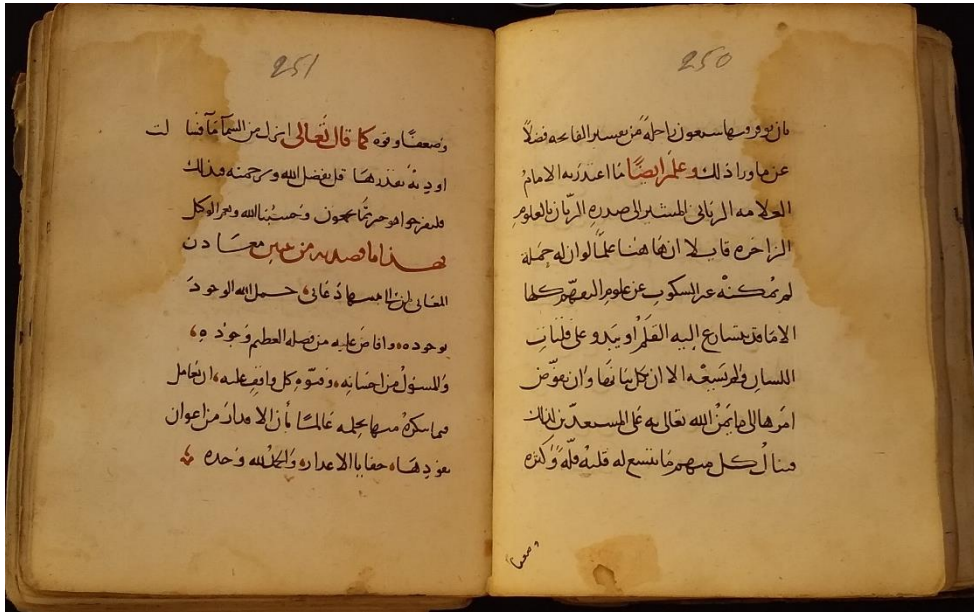 250
بان يوقر منها سبعون راحلة من تفسير الفاتحه فضلاً
عن ما ورا ذلك وعلم ايضًا ما اعتذر به الامام
العلامه الربانى المشير الى صدره الريّان بالعلوم
الزاخره قايلا ان هاهنا علمًا لو ان له حملة
لم يمكنه عن السكوت عن علوم القوم كلها
الا ما قد يتسارع اليه القلم او يبدو على فلتات
اللسان ولم تسعه الا ان يكل بيانها وان يفوّض
امرها الى ما يمنّ الله تعالى به على المستعدّين لذلك
فينال كل منهم ما يتسع له قلبه قلّة وكثره
وضعفا
251
وضعفًا وقوه كما قال تعالى انزل من السمآ مآ فسالت
اوديه بقدرها قل بفضل الله وبرحمته فبذلك
فليفرحوا هو خير مما يجمعون وحسبنا الله ونعم الوكيل
فهذا ما قصدته من عين معادن
المعانى لمن حمل الله الوجود
بوجوده وافاض عليه من فضله العظيم وجوده
والمسؤل من احسانه وفتوّه كل واقف عليه ان يعامل
فما ينكره منها بحلمه عالمًا بأن الاقدار من اعوان
الاعذار والحمد لله وحده